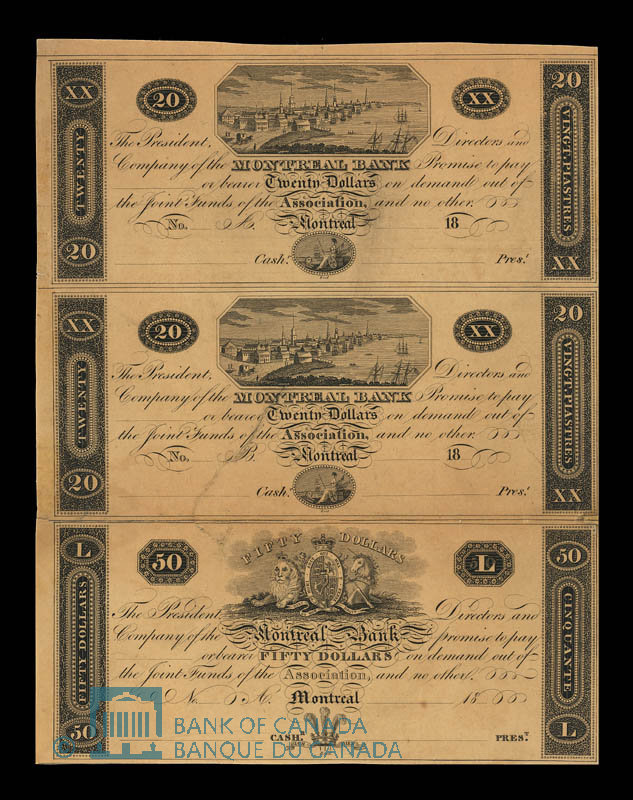 XX
20
XX
20
TWENTY
The President, Directors and
Company of the MONTREAL BANK Promise to pay
or bearer Twenty Dollars on demand out of
the Joint Funds of the Association, and no other.
No. Montreal 18
Cash.r Pres.t
20
VINGT PIASTRES
XX
XX
20
XX
20
TWENTY
The President, Directors and
Company of the MONTREAL BANK Promise to pay
or bearer Twenty Dollars on demand out of
the Joint Funds of the Association, and no other.
No. B. Montreal 18
Cash.r Pres.t
20
VINGT PIASTRES
XX
L
50
FIFTY DOLLARS
L
50
FIFTY DOLLARS
The President, Directors and
Company of the Montreal Bank promise to pay
or bearer FIFTY DOLLARS on demand out of
the Joint Funds of the Association, and no other.
No. A. Montreal 18
CASH.R PRES.T
50
CINQUANTE
L
© BANK OF CANADA
BANQUE DU CANADA